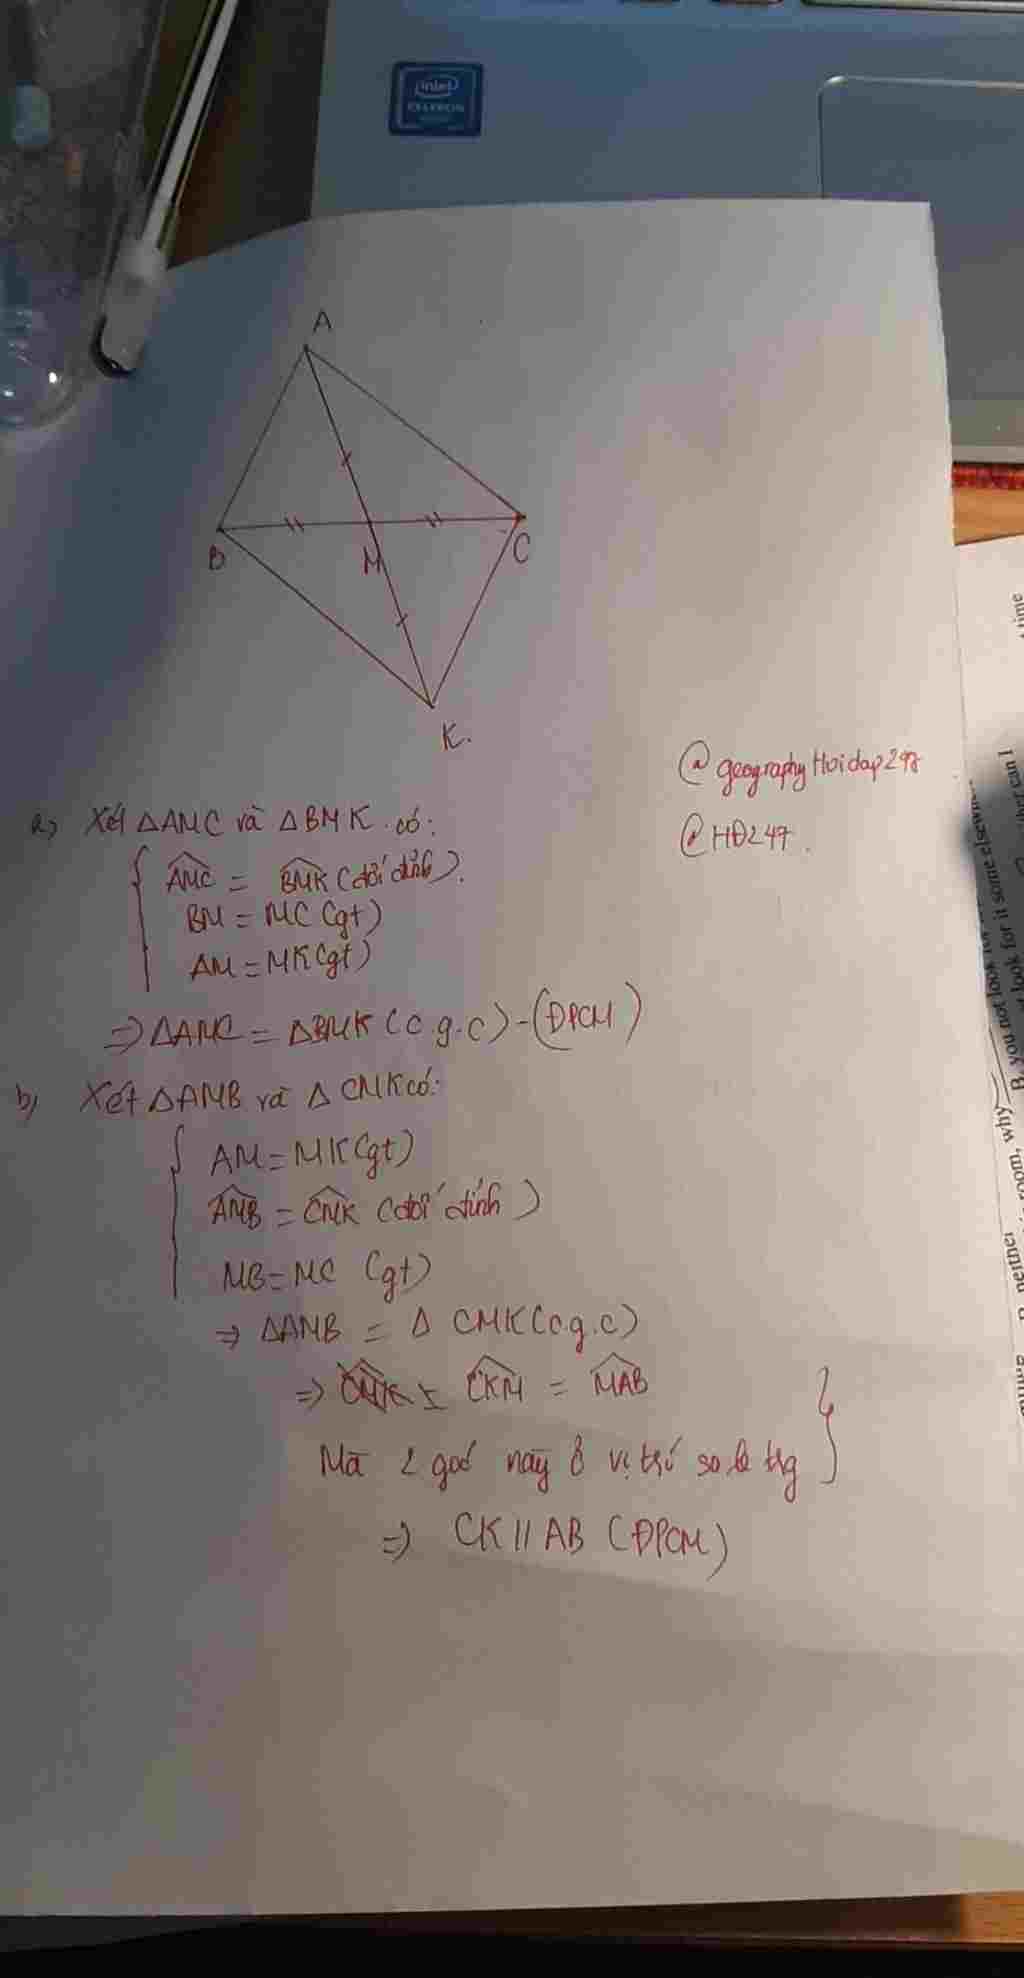 intel
CELERON
A
B
M
C
K.
@geographyHoidap247
@HĐ247.
a) Xét ΔAMC và ΔBMK có:
AMC = BMK (đối đỉnh).
BM = MC (gt)
AM = MK (gt)
=> ΔAMC = ΔBMK (c.g.c) - (ĐPCM)
b) Xét ΔAMB và Δ CMK có:
AM = MK (gt)
AMB = CMK (đối đỉnh)
MB = MC (gt)
=> ΔAMB = Δ CMK (c.g.c)
=> CKM = MAB
Mà 2 góc này ở vị trí so le trg
=> CK // AB (ĐPCM)
time
her can I
look for it some elsewh
B. you not look
room, why